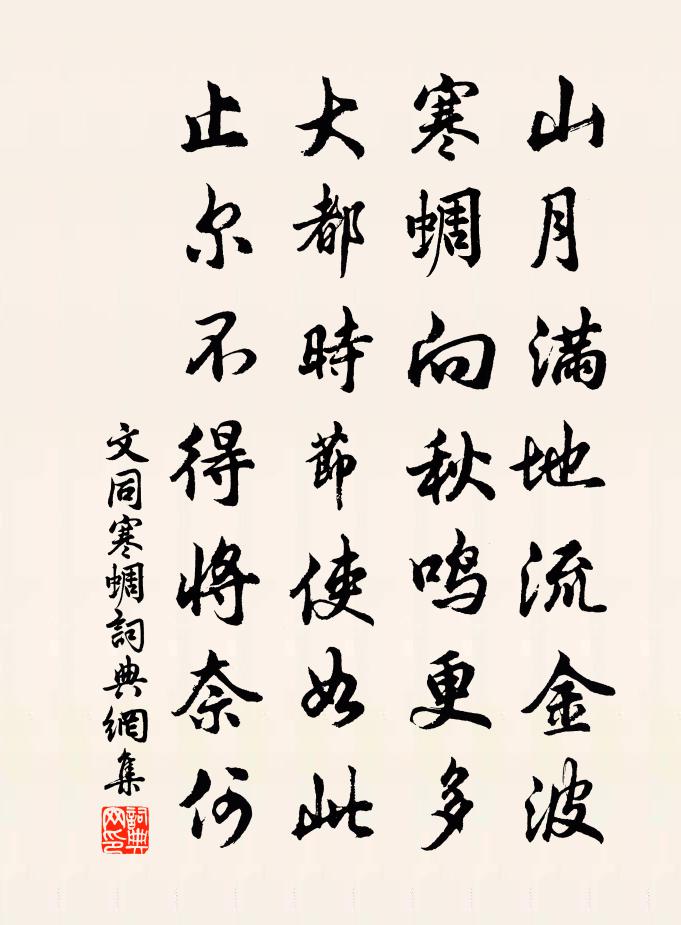 山月满地流金波
寒蜩向秋鸣更多
大都時節使如此
止尔不得将奈何
文同寒蜩詞典網集
詞典网印